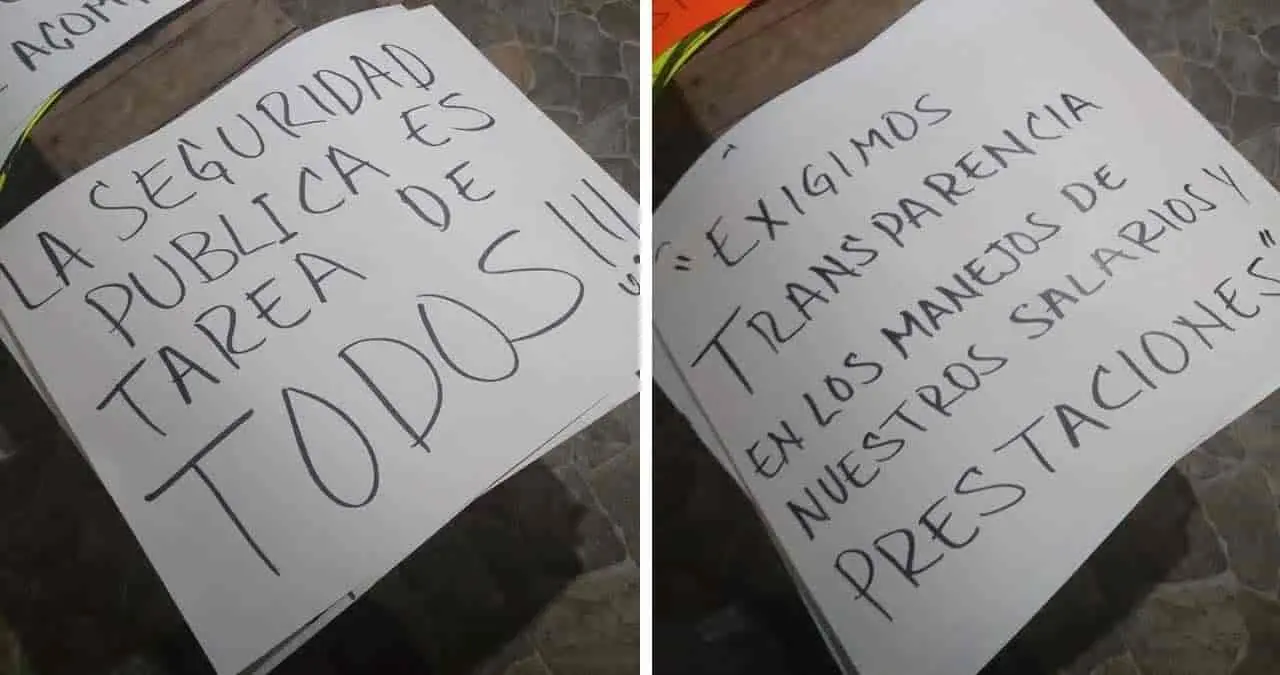 AGOM
LA SEGURIDAD
PUBLICA ES
TAREA DE
TODOS!!!
"EXIGIMOS
TRANSPARENCIA
EN LOS MANEJOS DE
NUESTROS SALARIOS Y
PRESTACIONES"